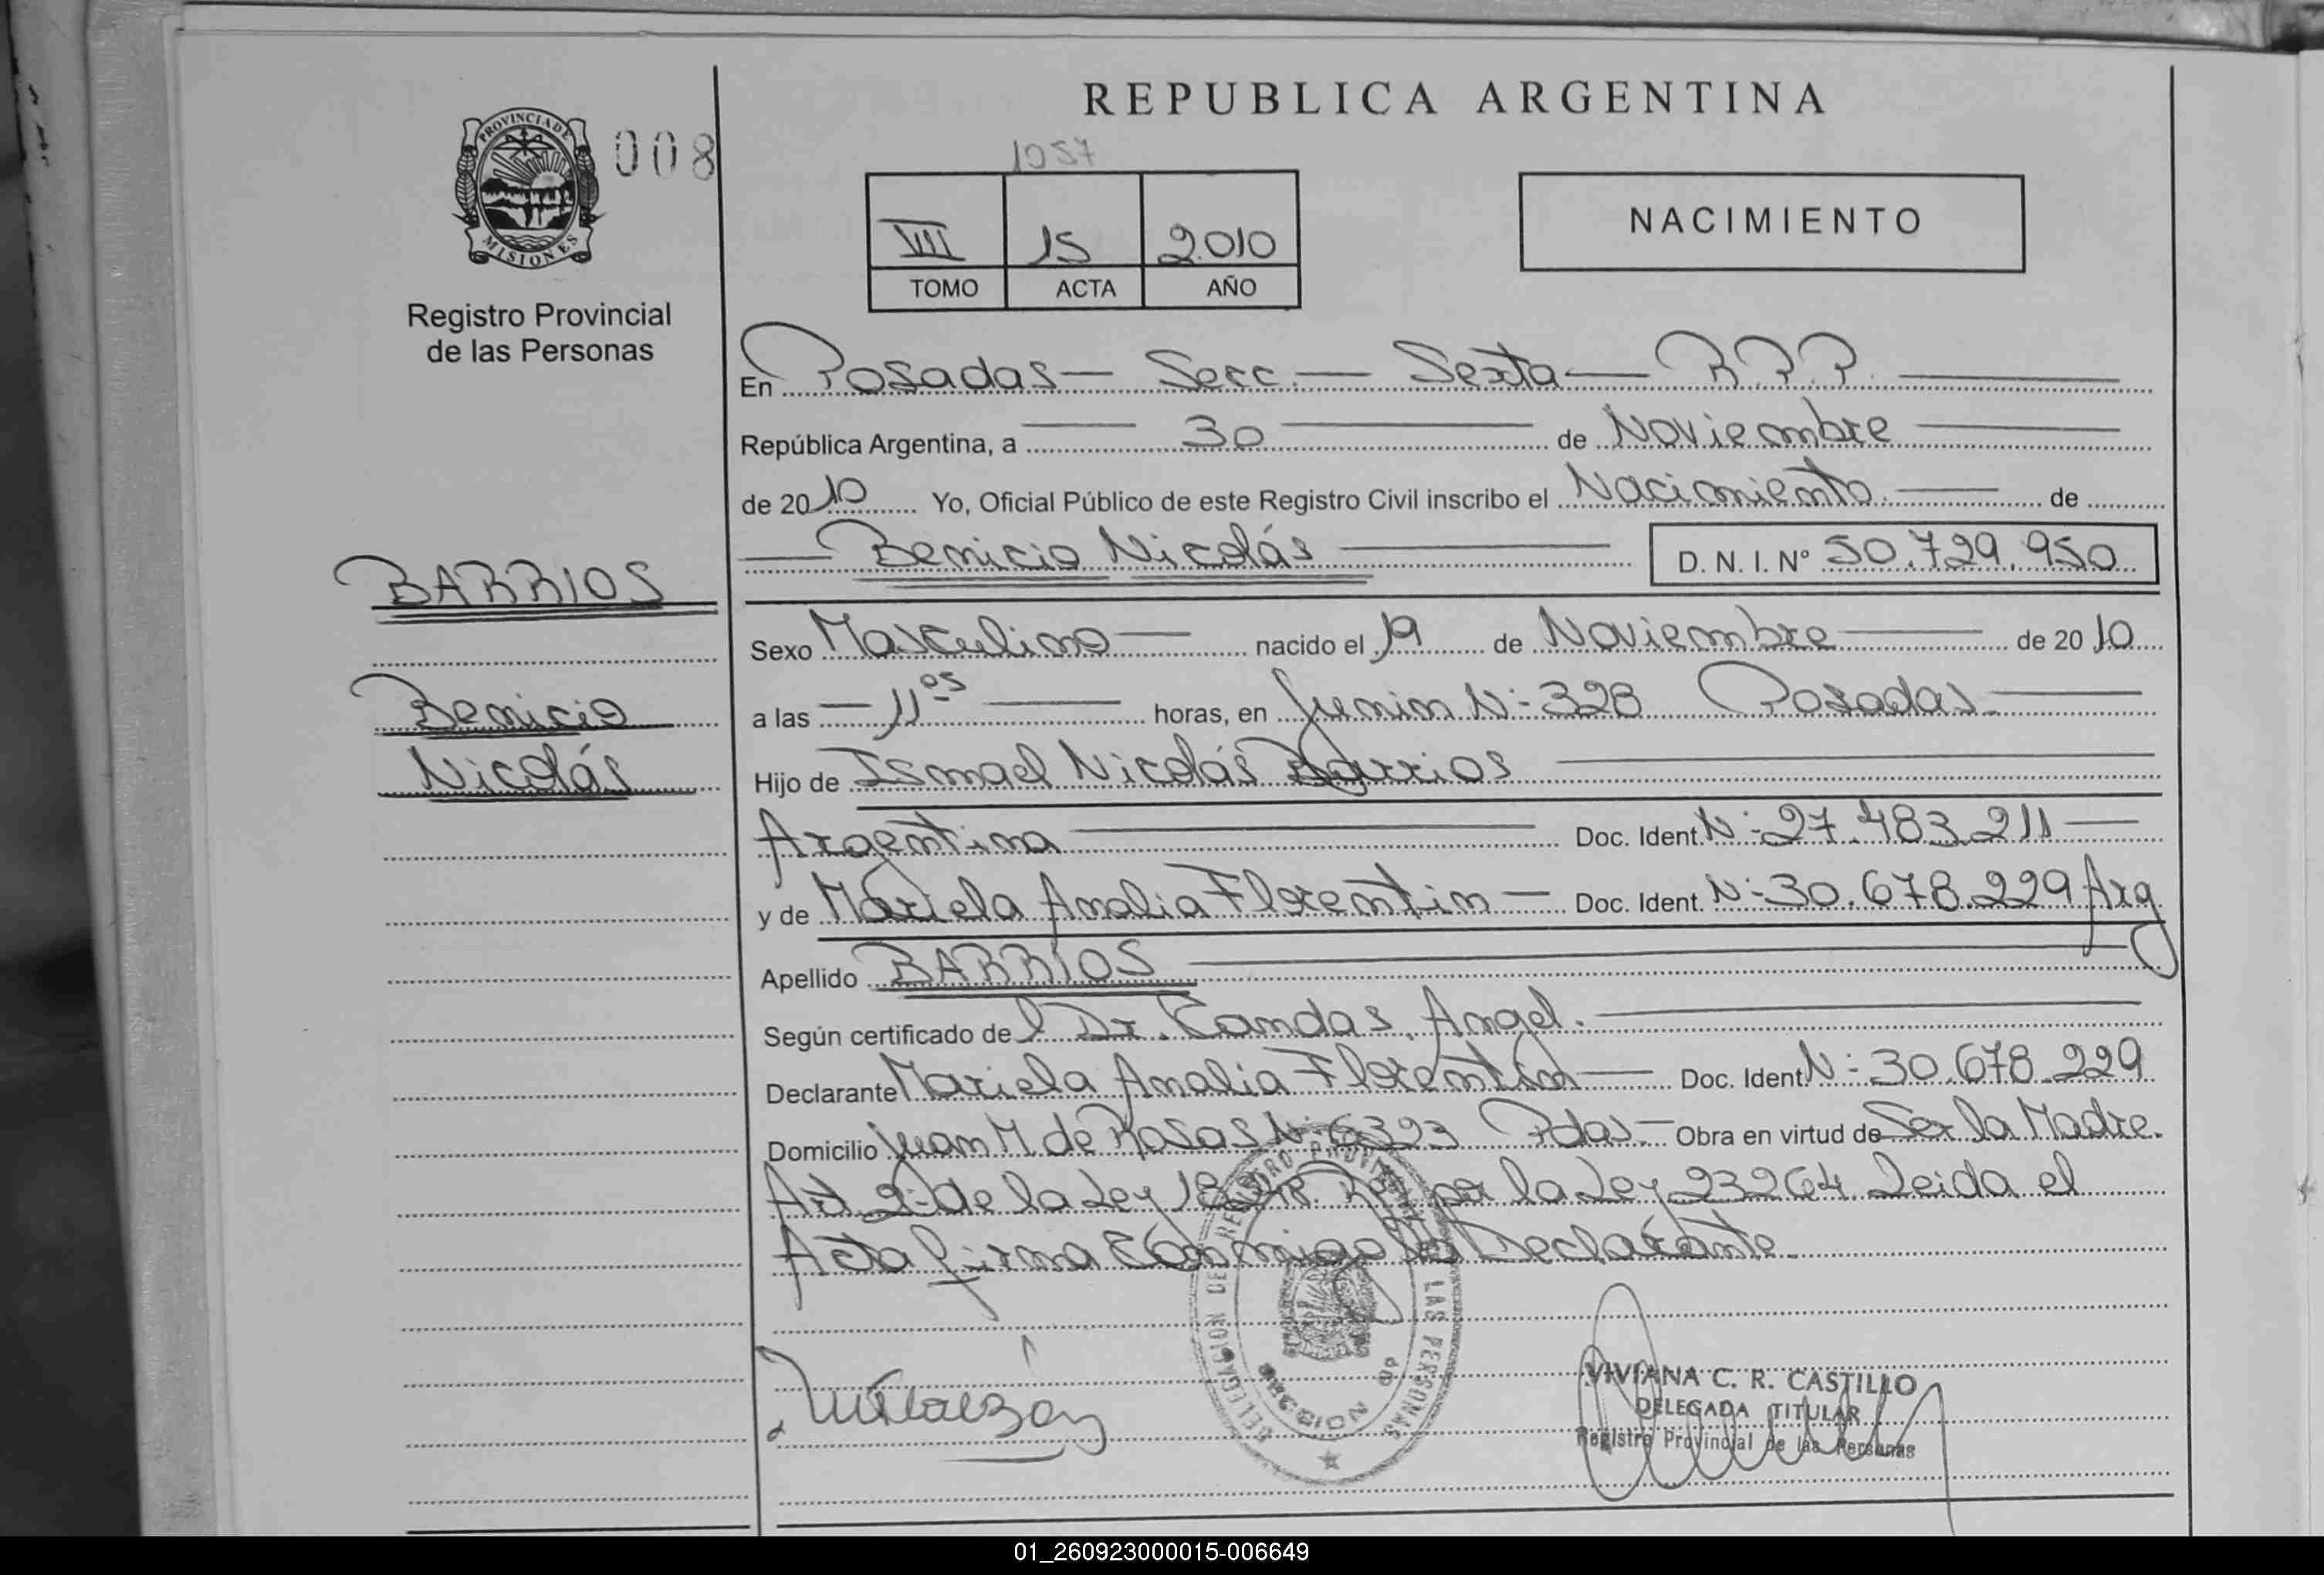 REPUBLICA ARGENTINA
PROVINCIA DE
MISIONES
008
Registro Provincial
de las Personas
1057
VIII 15 2010
TOMO ACTA AÑO
NACIMIENTO
En Posadas - Secc. - Sexta - R.P.P.
República Argentina, a 30 de Noviembre
de 2010 Yo, Oficial Público de este Registro Civil inscribo el Nacimiento. de
Benicio Nicolás D. N. I. Nº 50.729.950
BARRIOS
Benicio
Nicolás
Sexo Masculino nacido el 19 de Noviembre de 2010
a las 11 05 horas, en Junin Nº 328 Posadas.
Hijo de Ismael Nicolás Barrios
Argentina Doc. Ident. Nº 27.483.211
y de Mariela Analia Florentin Doc. Ident. Nº 30.678.229 Arg
Apellido BARRIOS
Según certificado del Dr. Candas, Angel.
Declarante Mariela Analia Florentin Doc. Ident. Nº 30.678.229
Domicilio Juan M. de Rosas Nº 6323 Pdas. Obra en virtud de Ser la Madre.
Art. 2º de la Ley 18.248. por la Ley 23264. Leida el
Acta firma Conmigo la Declarante.
DELEGACION DEL REGISTRO PROVINCIAL DE LAS PERSONAS
SECCION 6º
VIVIANA C. R. CASTILLO
DELEGADA TITULAR
Registro Provincial de las Personas
01_260923000015-006649